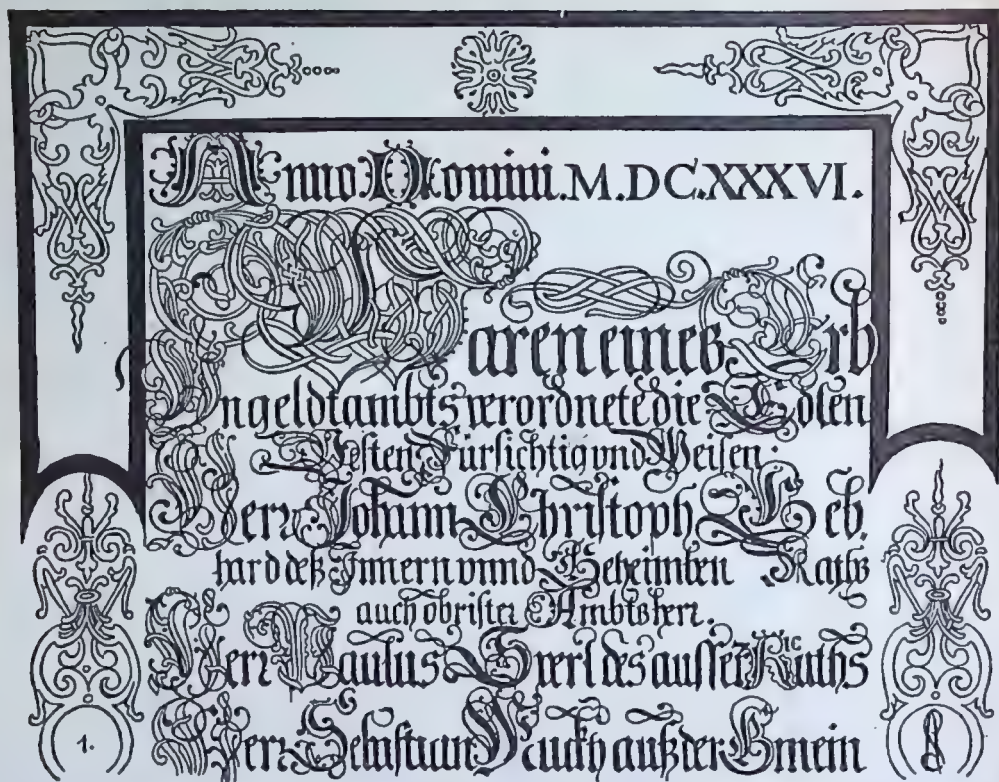 Anno Domini. M.DC.XXXVI.
Waren eines Erb
Ungeldtambts verordnete die Edlen
Vesten Fürsichtig vnd Weisen:
Herr Johann Christoph Leb.
hard deß Innern vnnd Geheimben Raths
auch obrister Ambtsherr.
Herr Paulus Sperl des ausser Raths
Herr Sebastian auß der Gmein
1.